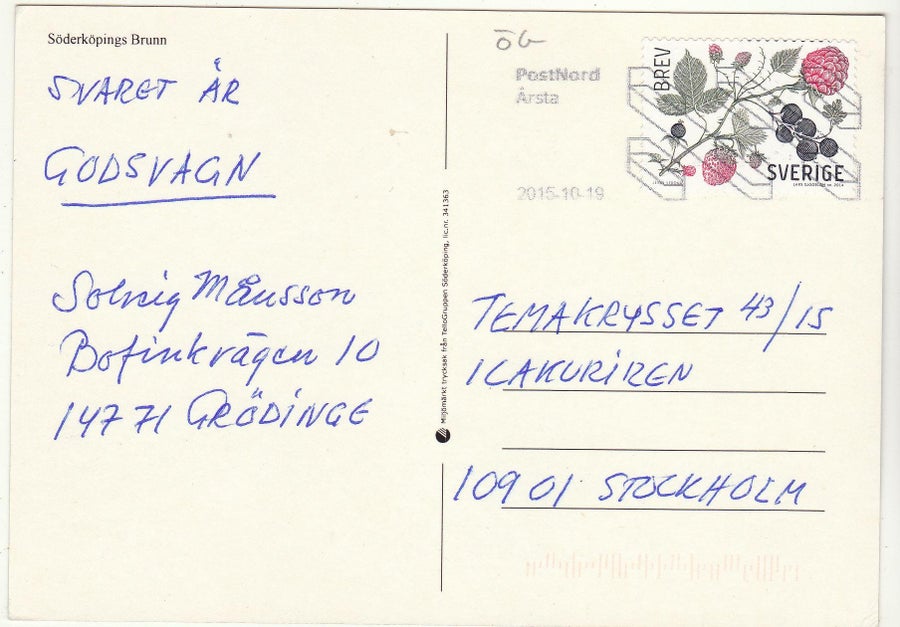 Söderköpings Brunn
SVARET ÄR
GODSVAGN
Solveig Månsson
Bofinkvägen 10
14771 GRÖDINGE
Miljömärkt trycksak från TelloGruppen Söderköping, lic.nr. 341363
ÖG
PostNord
Årsta
2015-10-19
BREV
SVERIGE
TEMAKRYSSET 43/15
ICAKURIREN
10901 STOCKHOLM